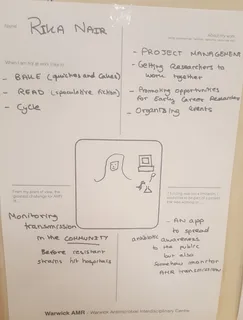 Name:
RIKA NAIR
When I am not at work I like to:
- BAKE (quiches and cakes)
- READ (speculative fiction)
- Cycle
- PROJECT MANAGEMENT
- Getting Researchers to
work together
- Promoting opportunities
for Early Career Researchers
- Organising Events
Monitoring
transmission
in the COMMUNITY
Before resistant
strains hit hospitals
- AN app
to spread
antibiotic awareness
to the public
but also
somehow monitor
AMR transmission
Warwick AMR - Warwick Antimicrobial Interdisciplinary Centre